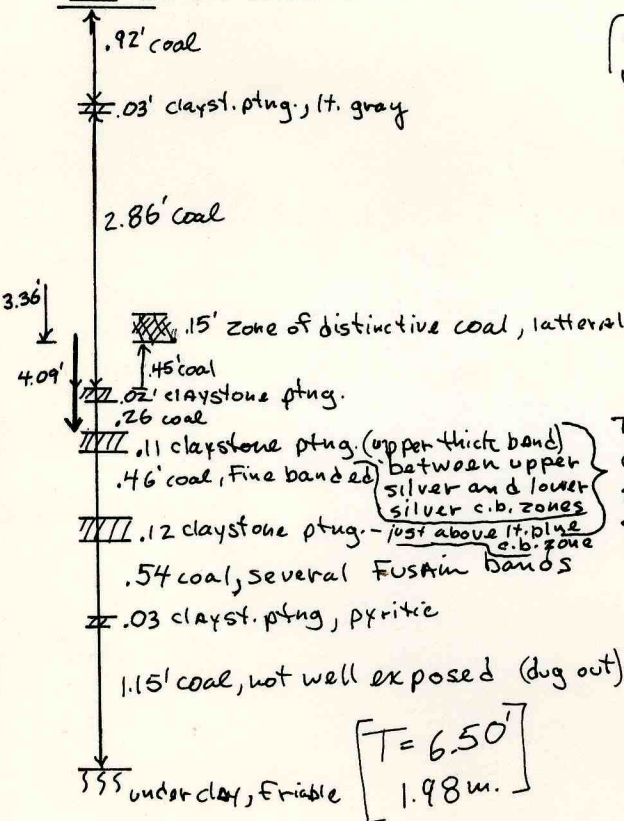 .92' coal
.03' clayst. ptng., lt. gray
2.86' coal
3.36'
.15' zone of distinctive coal, latteral
.45' coal
4.09'
.02' claystone ptng.
.26 coal
.11 claystone ptng. (upper thick band)
.46' coal, Fine banded
between upper
silver and lower
silver c.b. zones
.12 claystone ptng. - just above lt. blue
c.b. zone
.54 coal, several Fusain bands
.03 clayst. ptng, pyritic
1.15' coal, not well exposed (dug out)
underclay, Friable
T = 6.50'
1.98 m.